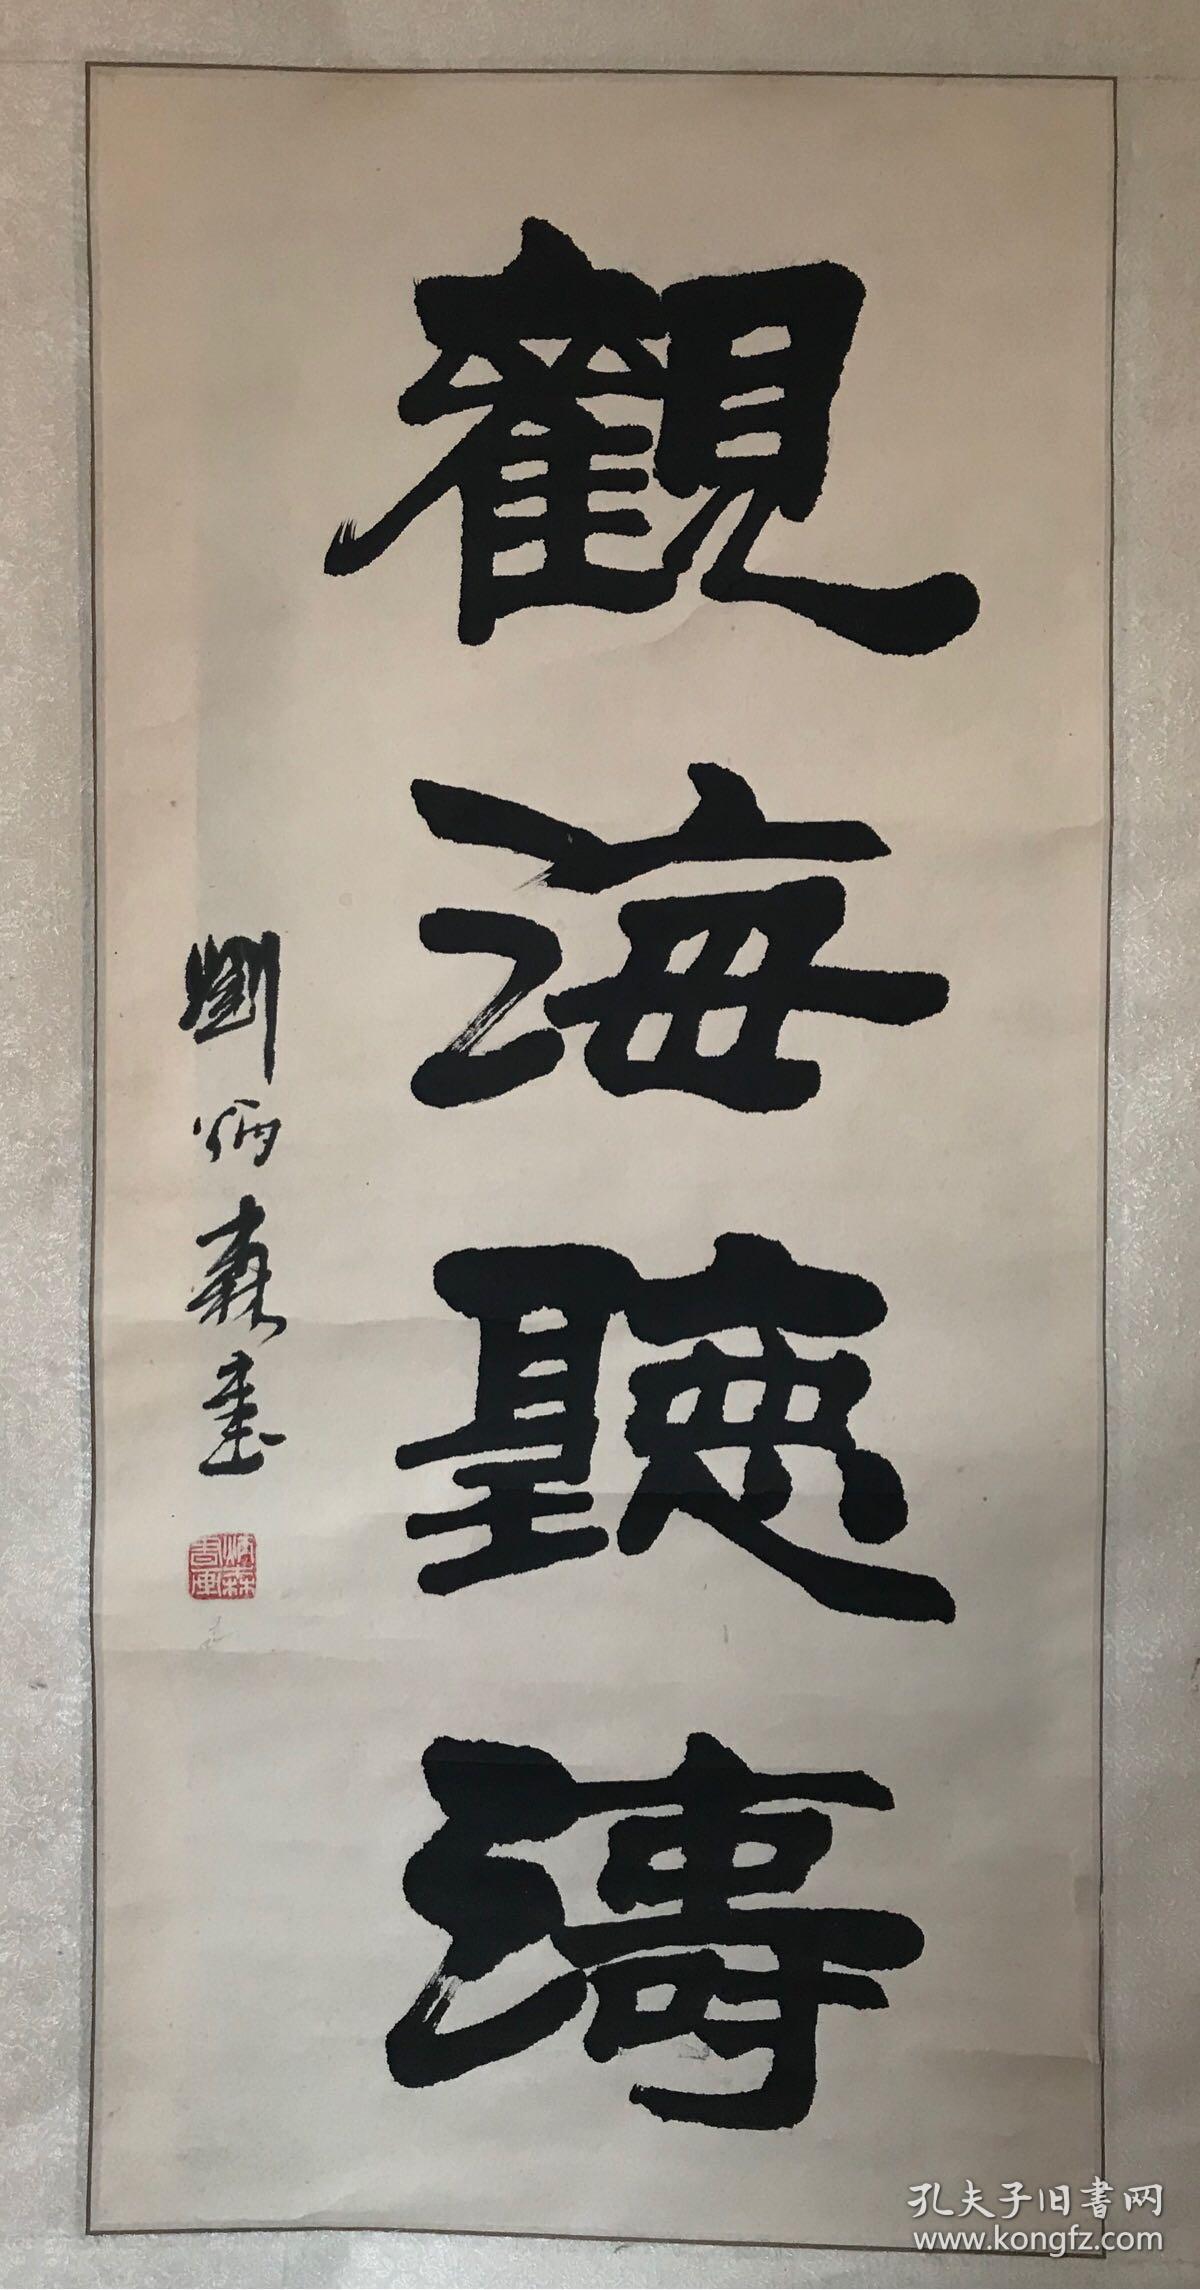 觀海聽濤
劉炳森書
炳森書画
孔夫子旧書网
www.kongfz.com